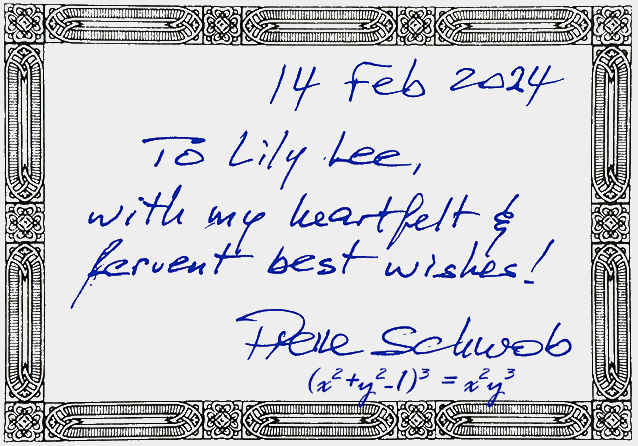 14 Feb 2024
To Lily Lee,
with my heartfelt &
fervent best wishes!
Schwob
(x²+y²-1)³ = x²y³